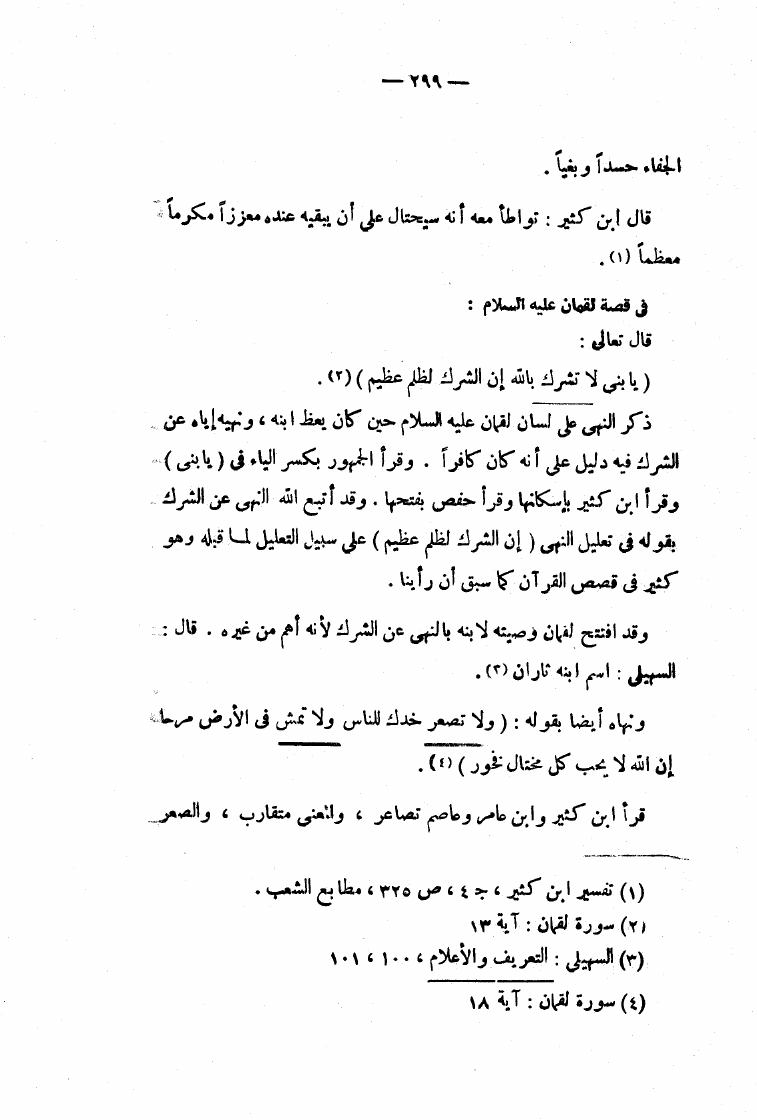 — ٢٩٩ —
الجفاء حسداً وبغياً .
قال ابن كثير : تواطأ معه أنه سيحتال على أن يبقيه عنده معززاً مكرماً
معظماً (١) .
فى قصة لقمان عليه السلام :
قال تعالى :
( يابنى لا تشرك بالله إن الشرك لظلم عظيم ) (٢) .
ذكر النهى على لسان لقمان عليه السلام حين كان يعظ ابنه ، ونهيه إياه عن
الشرك فيه دليل على أنه كان كافراً . وقرأ الجمهور بكسر الياء فى ( يابنى )
وقرأ ابن كثير بإسكانها وقرأ حفص بفتحها . وقد أتبع الله النهى عن الشرك
بقوله فى تعليل النهى ( إن الشرك لظلم عظيم ) على سبيل التعليل لما قبله وهو
كثير فى قصص القرآن كما سبق أن رأينا .
وقد افتتح لقمان وصيته لابنه بالنهى عن الشرك لأنه أهم من غيره . قال :
السهيلى : اسم ابنه ثاران (٣) .
ونهاه أيضا بقوله : ( ولا تصعر خدك للناس ولا تمش فى الأرض مرحا
إن الله لا يحب كل مختال فخور ) (٤) .
قرأ ابن كثير وابن عامر وعاصم تصاعر ، والمعنى متقارب ، والصعر
(١) تفسير ابن كثير ، جـ ٤ ، ص ٣٢٥ ، مطابع الشعب .
(٢) سورة لقمان : آية ١٣
(٣) السهيلى : التعريف والأعلام ، ١٠٠ ، ١٠١
(٤) سورة لقمان : آية ١٨